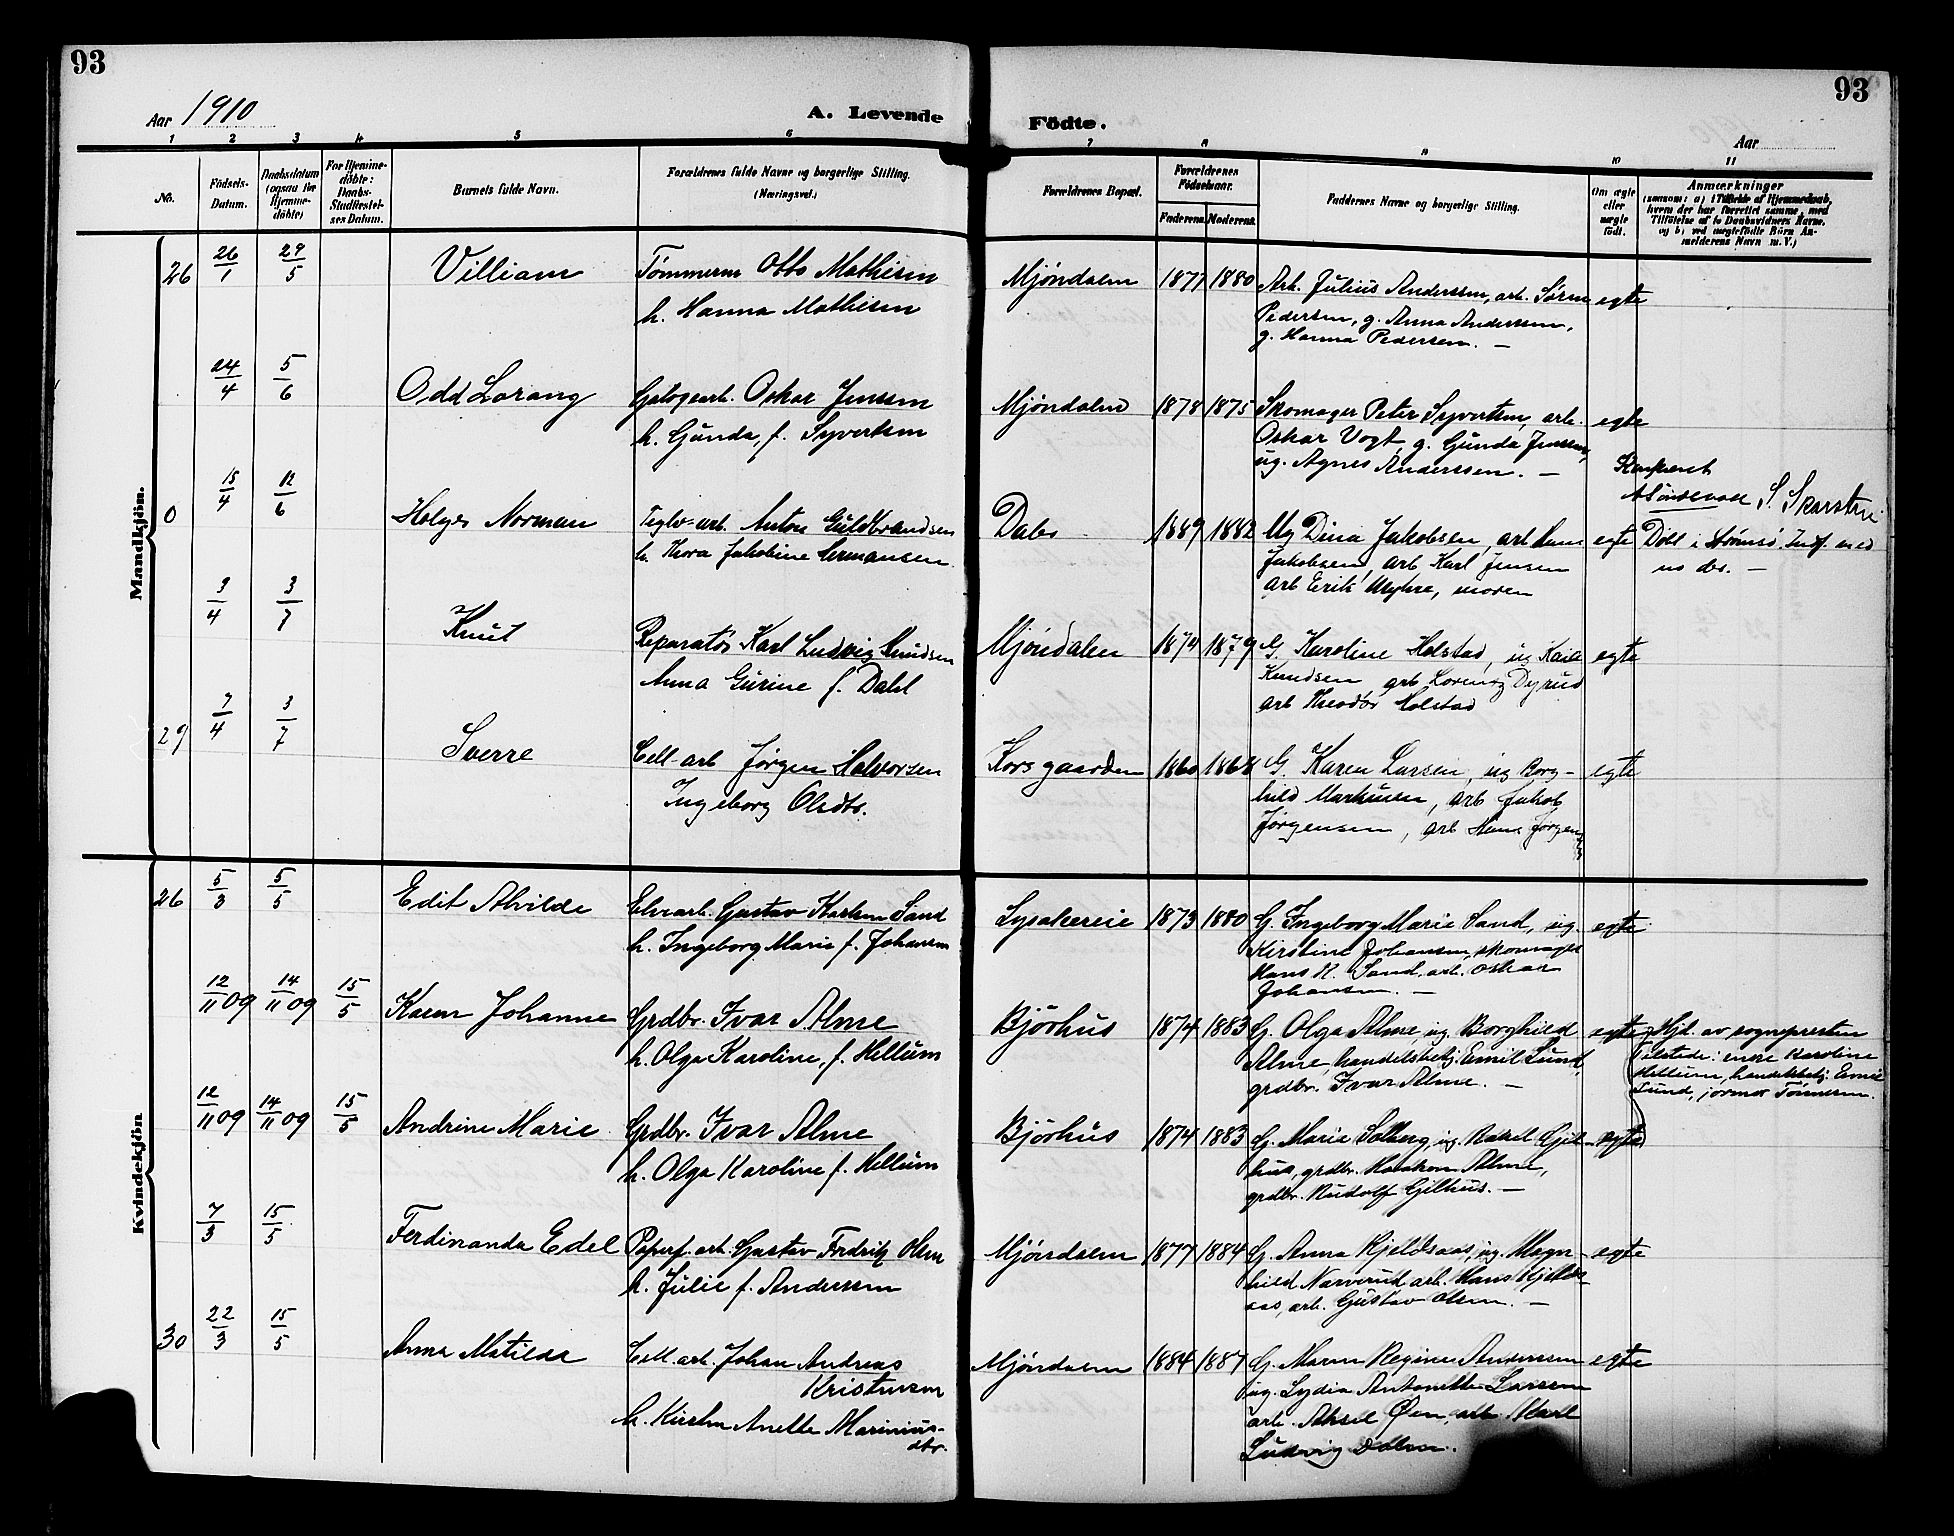 93
93
Aar 1910
A. Levende
Födte.
Aar
1 2 3 4 5 6
7 8 9 10 11
No.
Födsels-
Datum.
Daabsdatum
(ogsaa for
Hjemme-
döbte)
For Hjemme-
döbte:
Daabs-
Stadfæstel-
ses Datum.
Barnets fulde Navn.
Forældrenes fulde Navne og borgerlige Stilling.
(Næringsvei.)
Forældrenes Bopæl.
Forældrenes
Födselsaar.
Faderens. Moderens.
Faddernes Navne og borgerlige Stilling.
Om ægte
eller
uægte
född.
Anmærkninger
Mandkjön.
26
26/1
29/5
Villiam
Tømmerm Otto Mathisen
h. Hanna Mathisen
Mjøndalen 1877 1880
Arb. Julius Anderssen, arb. Søren
Pedersen, g. Anna Anderssen,
g. Hanna Pedersen. —
egte
24/4
5/6
Odd Lorang
Oskar Jenssen
h. Gunda, f. Syvertsen
Mjøndalen 1878 1875
Skomager Peter Syvertsen, arb.
Oskar Vogt, g. Gunda Jenssen,
ug. Agnes Anderssen. —
egte
0
15/4
12/6
Holger Norman
Teglv-arb. Anton Guldbrandsen
h. Thora Jakobine Hermansen
Dales 1889 1882
Ug Dina Jakobsen, arb
Jakobsen, arb Karl Jensen
arb Erik Myhre, moren
egte
S. Skarstein
Døbt i Strømsø. Indf. med
no ds. —
9/4
3/7
Knut
Reparatør Karl Ludvig Knudsen
Anna Gurine f. Dahl
Mjøndalen 1874 1879
G. Karoline Holstad, ug
Knudsen, arb Lorentz Dyrud
arb Theodor Holstad
egte
29
7/4
3/7
Sverre
Cell-arb Jørgen Halvorsen
Ingeborg Olsdtr.
Korsgaarden 1860 1868
G. Karen Larsen, ug Borg-
hild Markussen, arb Jakob
Jørgensen, arb Hans Jørgensen
egte
Kvindekjön
26
5/3
5/5
Edit Alvilde
Elvearb. Gustav Karlsen Sand
h. Ingeborg Marie f. Johansen
Lysakereie 1873 1880
G. Ingeborg Marie Sand, ug.
Kirstine Johansen, skomager
Hans K. Sand, arb. Oskar
Johansen. —
egte
12/11 09
14/11 09
15/5
Karen Johanne
Grdbr. Ivar Alme
h. Olga Karoline, f. Hellum
Bjørhus 1874 1883
G. Olga Alme, ug. Borghild
Alme, handelsbetj. Emil Lund,
grdbr. Ivar Alme. —
egte
Hjd. av sognepresten
tilstede: enke Karoline
Hellum, handelsbetj. Emil
Lund, jormor Tønnesen.
12/11 09
14/11 09
15/5
Andrine Marie
Grdbr. Ivar Alme
h. Olga Karoline f. Hellum
Bjørhus 1874 1883
G. Marie Solberg, ug. Rakel Gjel-
hus, grdbr. Haakon Alme,
grdbr. Rudolf Gjelhus. —
egte
7/3
15/5
Ferdinanda Edel
Papirf. arb. Gustav Fredrik Olsen
h. Julie f. Anderssen
Mjøndalen 1877 1884
G. Anna Kjeldsaas, ug. Magn-
hild Narverud arb. Hans Kjelds-
aas, arb. Gustav Olsen. —
egte
30
22/3
15/5
Anna Matilde
Cell. arb. Johan Andreas
Kristensen
h. Kirsten Anette Marinius-
dtr.
Mjøndalen 1884 1887
G. Maren Regine Anderssen
ug. Lydia Antonette Larssen
arb. Aksel Øen, arb. Karl
Ludvig Olsen.
egte